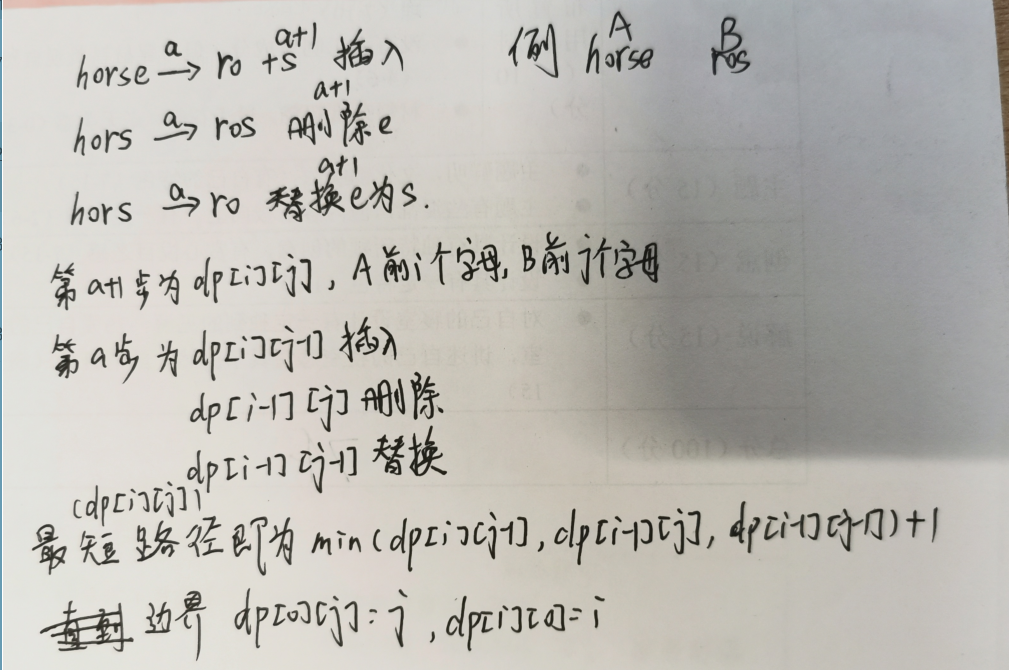 horse -a-> ro +s a+1 插入 例 A horse B ros
hors -a-> ros a+1 删除e
hors -a-> ro a+1 替换e为s.
第a+1步为dp[i][j], A前i个字母, B前j个字母
第a步为dp[i][j-1] 插入
dp[i-1][j] 删除
dp[i-1][j-1] 替换
(dp[i][j])
最短路径即为 min(dp[i][j-1], dp[i-1][j], dp[i-1][j-1])+1
边界 dp[0][j]=j, dp[i][0]=i
主题(15分)
创意(15
(100分)